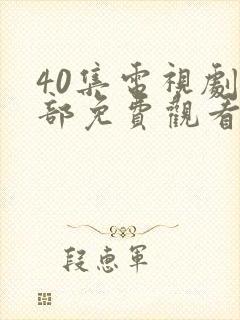 40集電視劇
部免費觀看
段惠軍